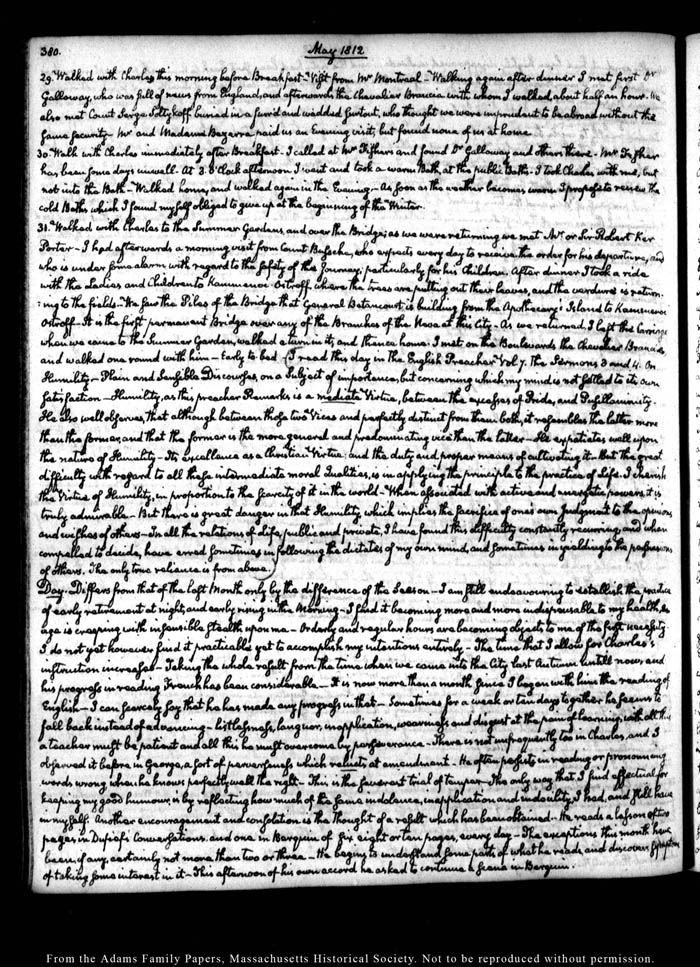 380.
May 1812
29. Walked with Charles this morning before Breakfast - Visit from Mr Montreal - Walking again after dinner I met first Dr
Galloway, who was full of news from England, and afterwards the Chevalier Brancia with whom I walked, about half an hour. We
also met Count Serge Soltykoff buried in a furr'd and wadded Surtout, who thought we were imprudent to be abroad without the
same security - Mr and Madame Bezerra paid us an Evening visit, but found none of us at home.
30. Walk with Charles immediately after Breakfast - I called at Mr Fishers and found Dr Galloway and others there - Mr Fisher
has been some days unwell. At 3. O'Clock afternoon I went and took a warm Bath, at the public Baths - I took Charles with me, but
not into the Bath - Walked home, and walked again in the Evening - As soon as the weather becomes warm I propose to renew the
cold Baths which I found myself obliged to give up at the beginning of the Winter.
31. Walked with Charles to the Summer Gardens and over the Bridge; as we were returning we met Mr or Sir Robert Ker
Porter - I had afterwards a morning visit from Count Bussche, who expects every day to receive the order for his departure, and
who is under some alarm with regard to the safety of the Journey, particularly for his Children. After dinner I took a ride
with the Ladies and Children to Kammenoi Ostroff, where the trees are putting out their leaves, and the verdure is return-
:ing to the fields. We saw the Piles of the Bridge that General Betancourt is building from the Apothecary's Island to Kammenoi
Ostroff - It is the first permanent Bridge over any of the Branches of the Neva at this City - As we returned, I left the Carriage
when we came to the Summer Garden, walked a turn in it, and thence home. I met on the Boulevards the Chevalier Brancia,
and walked one round with him - Early to bed - (I read this day in the English Preacher Vol 7. The Sermons 3 and 4. On
Humility - Plain and Sensible Discourses, on a Subject of importance, but concerning which my mind is not settled to its own
satisfaction - Humility, as this preacher Remarks is a mediate Virtue, between the excesses of Pride, and Pusillanimity.
He also well observes, that although between those two Vices and perfectly distinct from them both, it resembles the latter more
than the former, and that the former is the more general and predominating vice than the latter - He expatiates well upon
the nature of Humility - Its excellence as a Christian Virtue; and the duty and proper means of cultivating it - But the great
difficulty with regard to all these intermediate moral Qualities, is in applying the principle to the practice of life. I cherish
the Virtue of Humility, in proportion to the scarcity of it in the world - When associated with active and energetic powers, it is
truly admirable - But there is great danger in that Humility, which implies the sacrifice of one's own Judgment to the opinions
and wishes of others - In all the relations of life, public and private, I have found this difficulty constantly recurring, and when
compelled to decide, have erred sometimes in following the dictates of my own mind, and sometimes in yielding to the persuasions
of others. The only true reliance is from above.)
Day. Differs from that of the last Month only by the difference of the Season - I am still endeavouring to establish the practice
of early retirement at night, and early rising in the Morning - I find it becoming more and more indispensable to my health, as
age is creeping with insensible stealth upon me - Orderly and regular hours are becoming objects to me of the first necessity.
I do not yet however find it practicable yet to accomplish my intentions entirely - The time that I allow for Charles's
instruction increases - Taking the whole result from the time when we came into the City last Autumn untill now and
his progress in reading French has been considerable - It is now more than a month since I began with him the reading of
English - I can scarcely say that he has made any progress in that - Sometimes for a week or ten days together he seems to
fall back instead of advancing - listlessness, languor, inapplication, weariness and disgust at the pain of learning, with all this
a teacher must be patient and all this he must overcome by perseverance - There is not unfrequently too in Charles, and I
observed it before in George, a sort of perverseness which reluct's at amendment - He often persists in reading or pronouncing
words wrong when he knows perfectly well the right - This is the severest trial of temper - The only way that I find effectual for
keeping my good humour, is by reflecting how much of the same indolence, inapplication and indocility I had, and still have
in myself. Another encouragement and consolation is the thought of a result which has been obtained - He reads a lesson of two
pages in Dufief's Conversations, and one in Berquin of six eight or ten pages, every day - The exceptions this month have
been, if any, certainly not more than two or three - He begins to understand some parts of what he reads, and discovers symptoms
of taking some interest in it - This afternoon of his own accord he asked to continue a scene in Berquin.
From the Adams Family Papers, Massachusetts Historical Society. Not to be reproduced without permission.